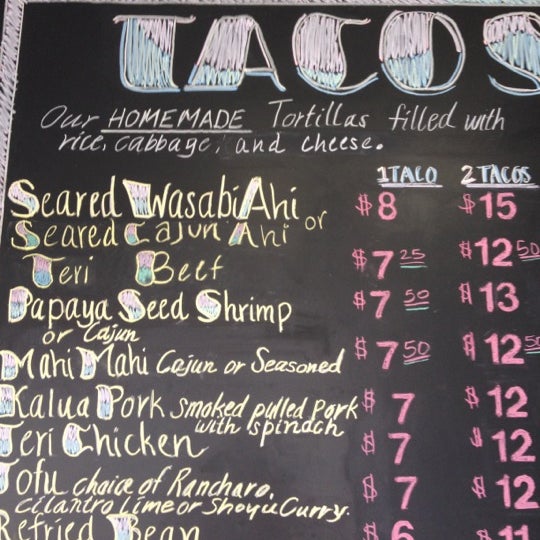 TACOS
Our HOMEMADE Tortillas filled with
rice, cabbage, and cheese.
1 TACO 2 TACOS
Seared Wasabi Ahi or $8 $15
Seared Cajun Ahi
Teri Beef $7 25 $12 50
Papaya Seed Shrimp $7 50 $13
or Cajun
Mahi Mahi Cajun or Seasoned $7 50 $12 50
Kalua Pork smoked pulled pork $7 $12
with spinach
Teri Chicken $7 $12
Tofu choice of Ranchero, $7 $12
Cilantro Lime or Shoyu Curry.
Refried Bean $6 $11